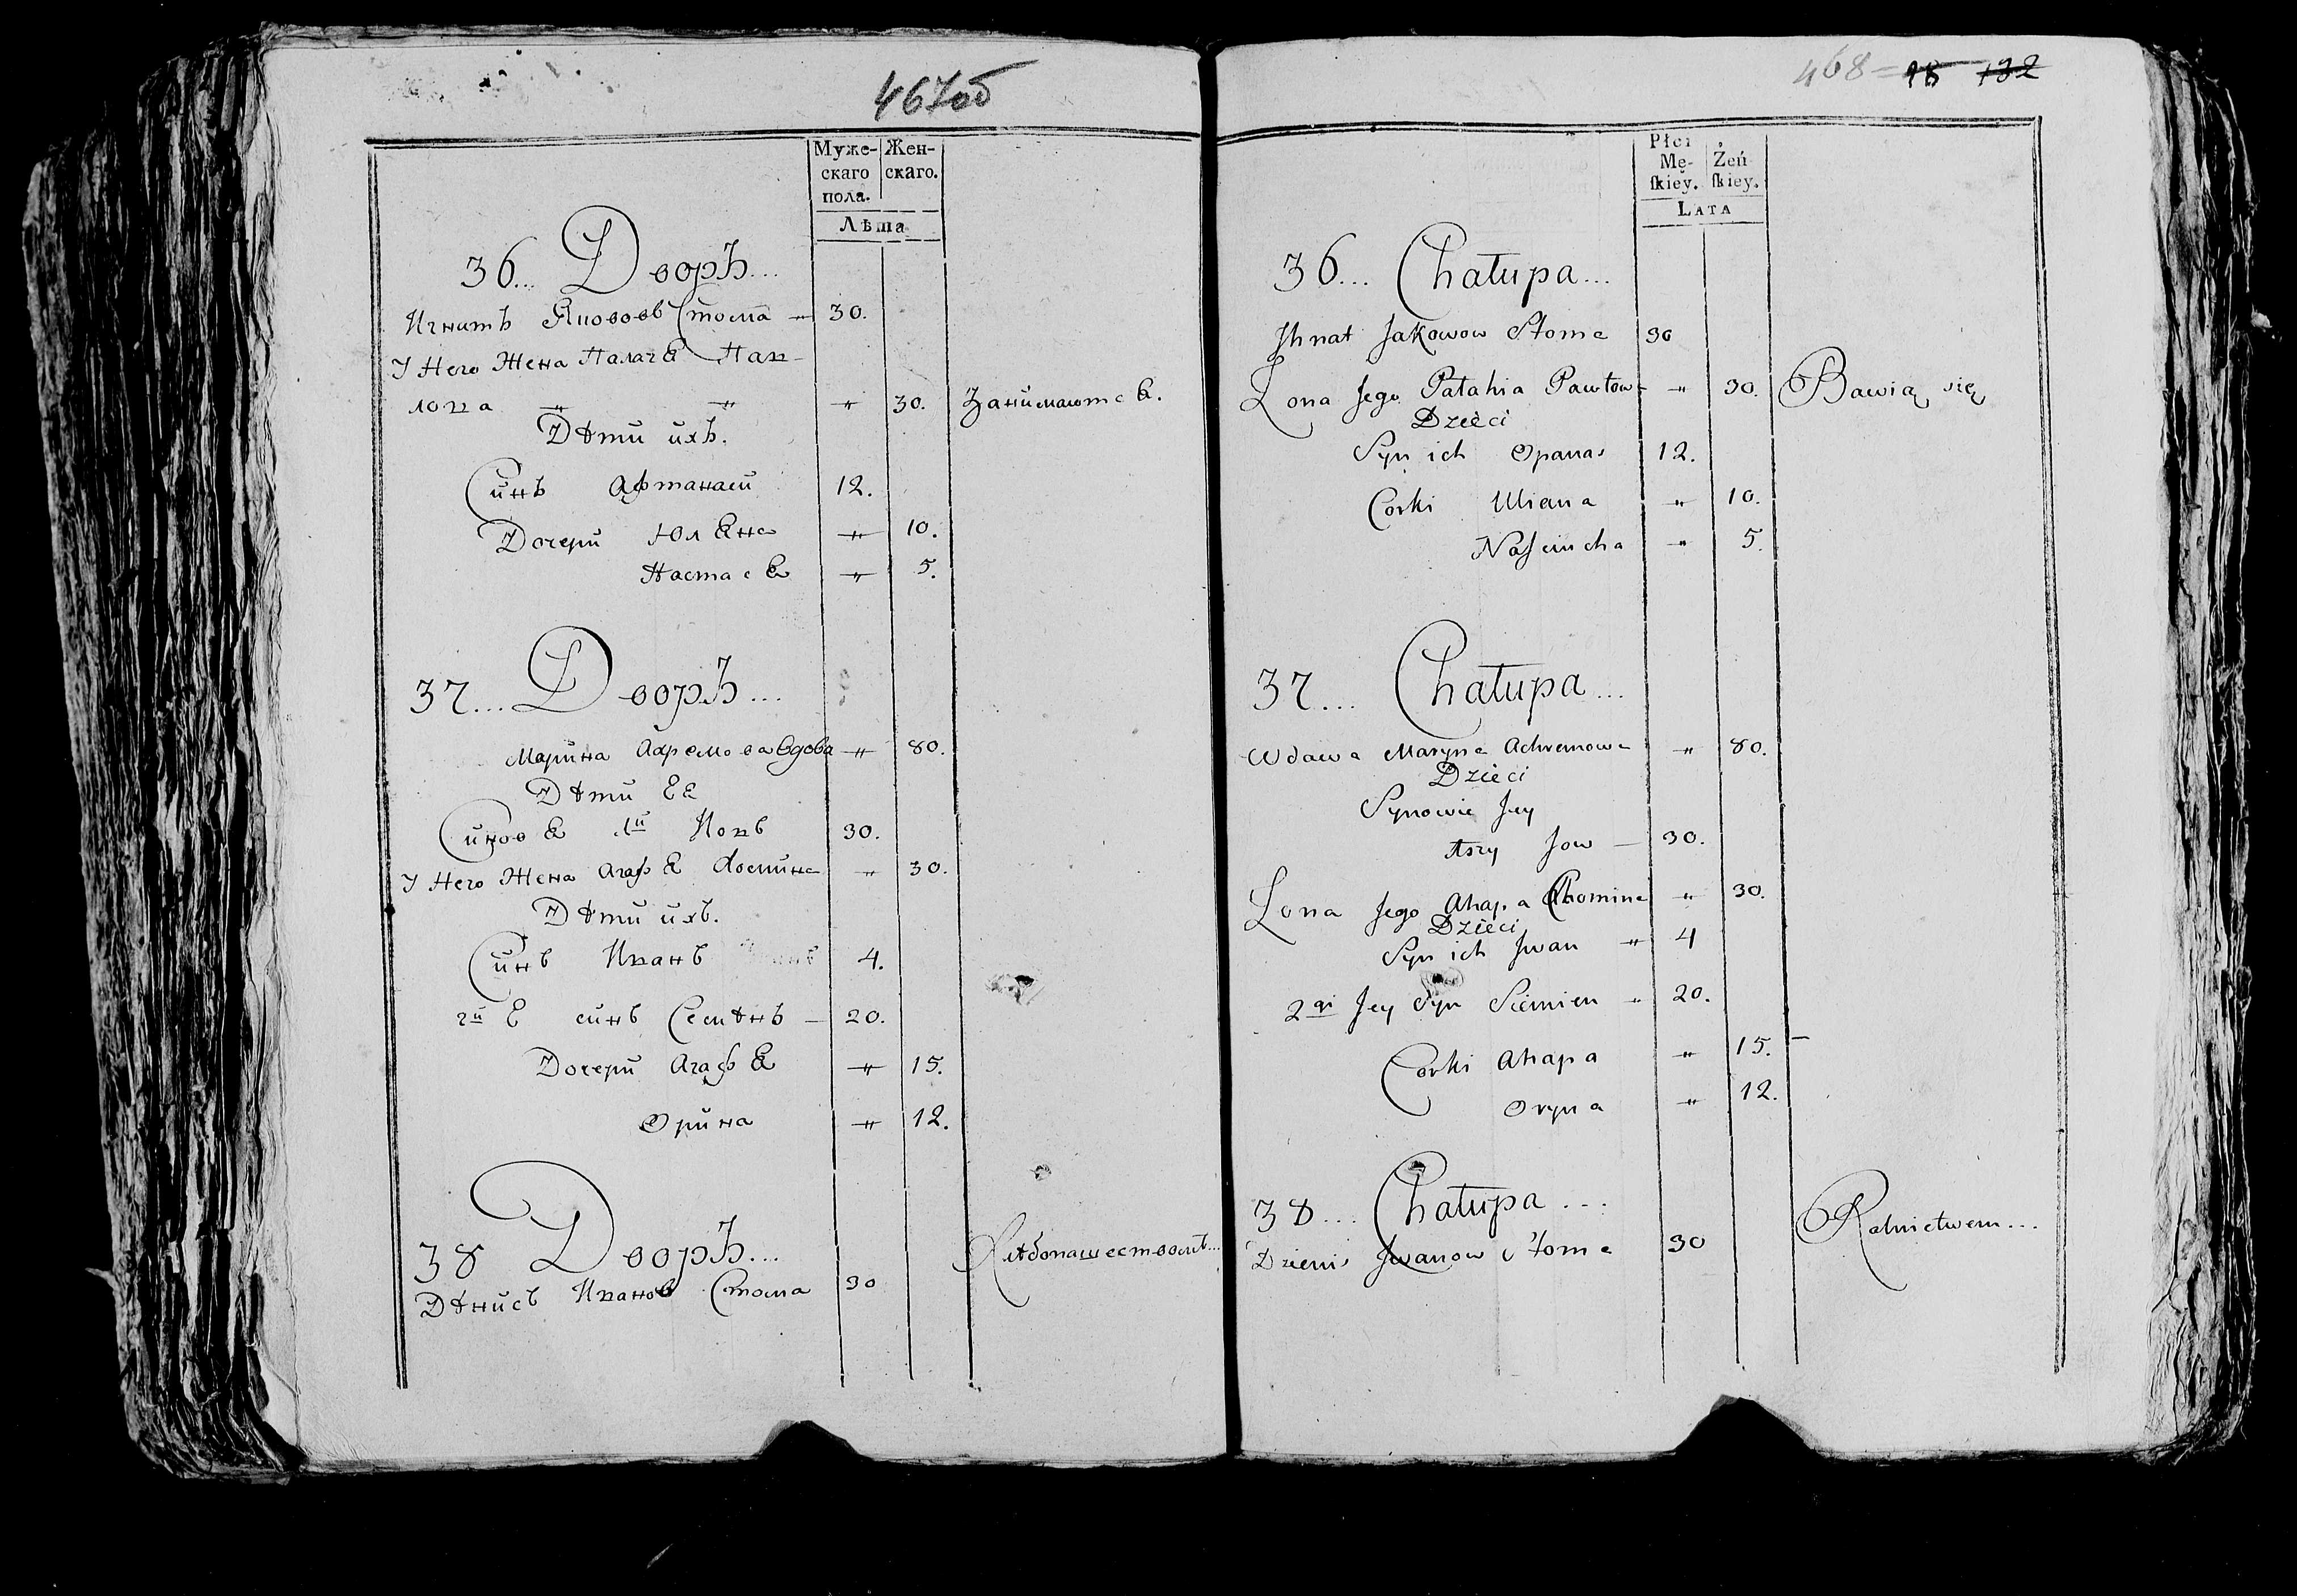 467об
Муже- Жен-
скаго скаго.
пола.
Лѣта
36... Дворъ...
Игнатъ Якововъ Стома 30.
У Него Жена Палагея Пав-
лова " " " 30. Занимаются.
Дѣти ихъ.
Синъ Афтанасй 12.
Дочери Юляна " 10.
Настася " 5.
37... Дворъ...
Марина Ахремова Вдова " 80.
Дѣти Ея
Синовя 1й Иовъ 30.
У Него Жена Агафя Хомина " 30.
Дѣти ихъ.
Синъ Иванъ 4.
2й Е синъ Семѣнъ 20.
Дочери Агафя " 15.
Орина " 12.
38 Дворъ... Хлѣбопашествомъ...
Дѣнисъ Ивановъ Стома 30
468 = 95 132
Płci
Mę- Żeń
ſkiey. ſkiey.
LATA
36... Chałupa...
Jhnat Jakowow Stoma 30
Żona Jego Pałahia Pawłowa " 30. Bawią się
Dzieci
Syn ich Opanas 12.
Corki Uliana " 10.
Naſciucha " 5.
37... Chałupa...
Wdowa Maryna Achremowa " 80.
Dzieci
Synowie Jey
1szy Jow 30.
Żona Jego Ahapa Chomina " 30.
Dzieci
Syn ich Jwan " 4
2gi Jey Syn Siemien " 20.
Corki Ahapa " 15.
Oryna " 12.
38... Chałupa... Rolnictwem...
Dzienis Jwanow Stoma 30